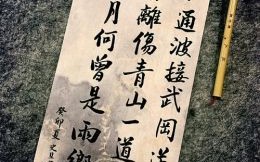 通波接武岡送
離傷青山一道
月何曾是兩鄉
癸卯夏